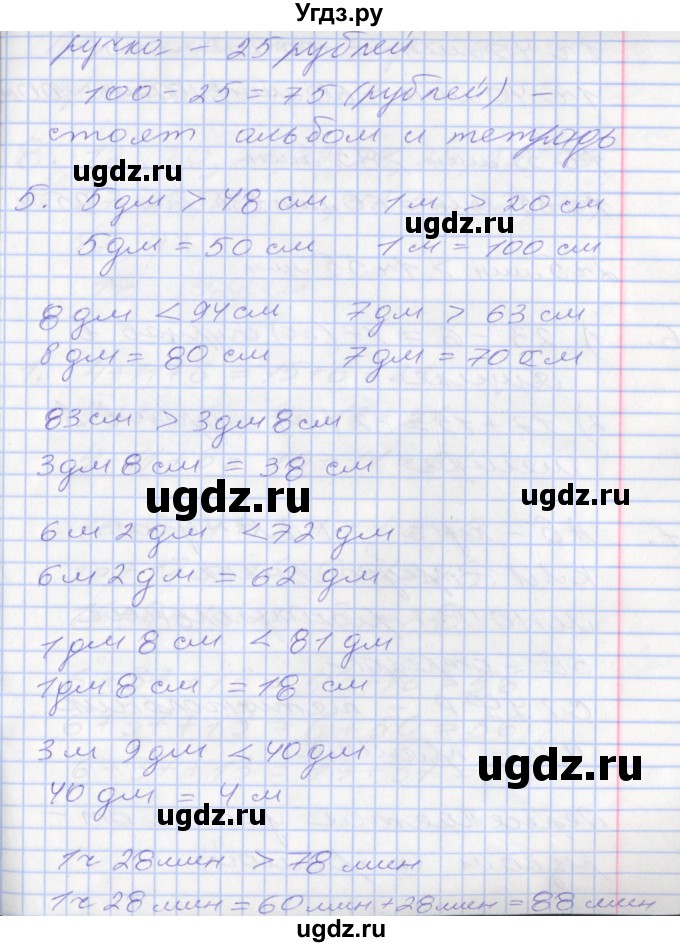 Угдз.ру
ручка - 25 рублей
100 - 25 = 75 (рублей) -
стоят альбом и тетрадь
ugdz.ru
5. 5 дм > 48 см 1 м > 20 см
ugdz.ru
5 дм = 50 см 1 м = 100 см
8 дм < 94 см 7 дм > 63 см
8 дм = 80 см 7 дм = 70 см
83 см > 3 дм 8 см
3 дм 8 см = 38 см
ugdz.ru ugdz.ru
6 м 2 дм < 72 дм
6 м 2 дм = 62 дм
1 дм 8 см < 81 дм
1 дм 8 см = 18 см
3 м 9 дм < 40 дм
ugdz.ru
40 дм = 4 м
ugdz.ru
1 ч 28 мин > 78 мин
1 ч 28 мин = 60 мин + 28 мин = 88 мин
ugdz.ru